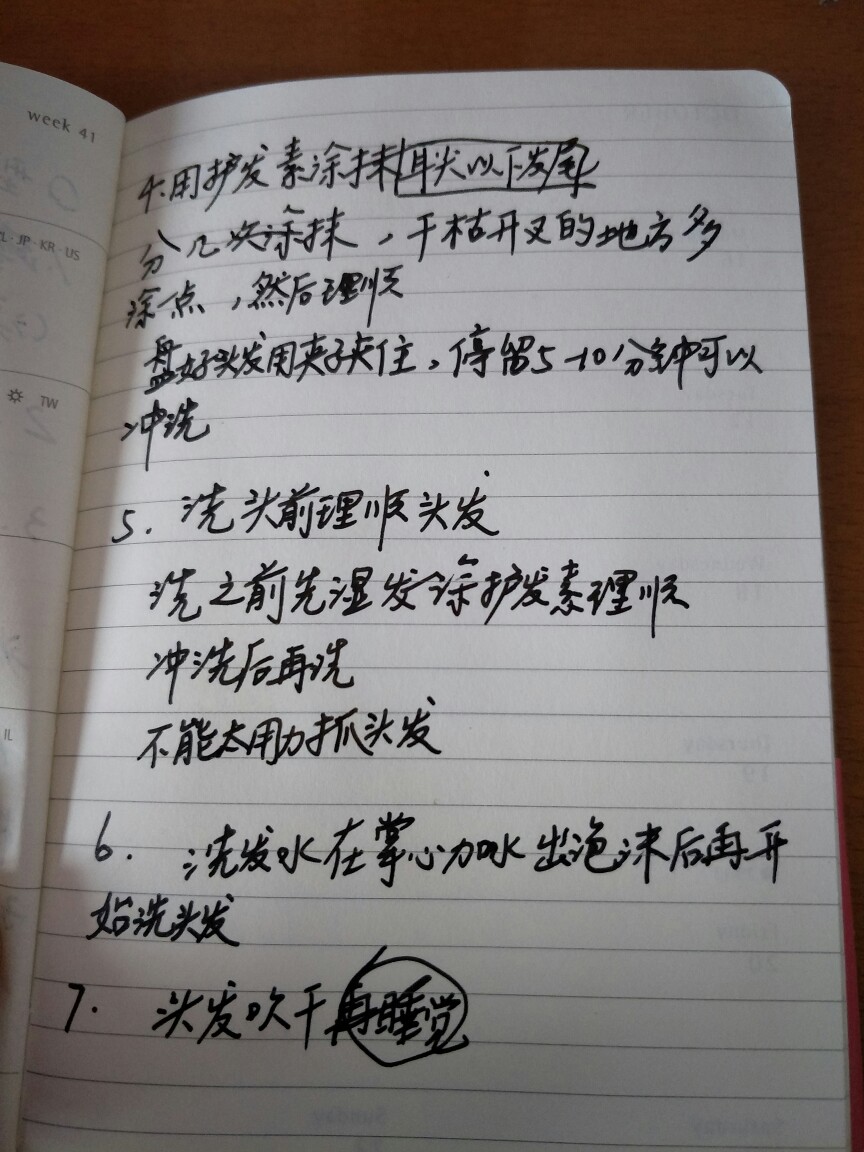 week 41
JP·KR·US
TW
IL
4.用护发素涂抹耳尖以下发尾
分几次涂抹，干枯开叉的地方多
涂点，然后理顺
盘好头发用夹子夹住，停留5-10分钟可以
冲洗
5. 洗头前理顺头发
洗之前先湿发涂护发素理顺
冲洗后再洗
不能太用力抓头发
6. 洗发水在掌心加水出泡沫后再开
始洗头发
7. 头发吹干再睡觉